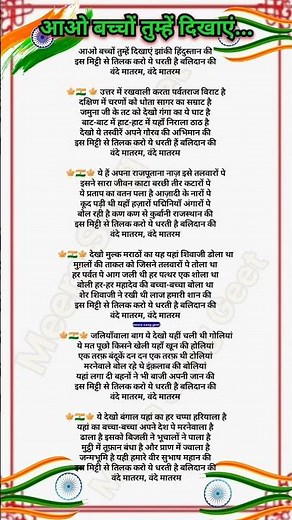 आओ बच्चों तुम्हें दिखाएं...
आओ बच्चों तुम्हें दिखाएं झांकी हिंदुस्तान की
इस मिट्टी से तिलक करो ये धरती है बलिदान की
वंदे मातरम, वंदे मातरम
उत्तर में रखवाली करता पर्वतराज विराट है
दक्षिण में चरणों को धोता सागर का सम्राट है
जमुना जी के तट को देखो गंगा का ये घाट है
बाट-बाट में हाट-हाट में यहाँ निराला ठाठ है
देखो ये तस्वीरें अपने गौरव की अभिमान की
इस मिट्टी से तिलक करो ये धरती हैं बलिदान की
वंदे मातरम, वंदे मातरम
ये हैं अपना राजपूताना नाज़ इसे तलवारों पे
इसने सारा जीवन काटा बरछी तीर कटारों पे
ये प्रताप का वतन पला है आज़ादी के नारों पे
कूद पड़ी थी यहाँ हज़ारों पद्मिनियाँ अंगारों पे
बोल रही है कण कण से कुर्बानी राजस्थान की
इस मिट्टी से तिलक करो ये धरती है बलिदान की
वंदे मातरम, वंदे मातरम
देखो मुल्क मराठों का यह यहां शिवाजी डोला था
मुग़लों की ताकत को जिसने तलवारों पे तोला था
हर पर्वत पे आग जली थी हर पत्थर एक शोला था
बोली हर-हर महादेव की बच्चा-बच्चा बोला था
शेर शिवाजी ने रखी थी लाज हमारी शान की
इस मिट्टी से तिलक करो ये धरती है बलिदान की
वंदे मातरम, वंदे मातरम
जलियाँवाला बाग ये देखो यहीं चली थी गोलियां
ये मत पूछो किसने खेली यहाँ खून की होलियां
एक तरफ़ बंदूकें दन दन एक तरफ़ थी टोलियां
मरनेवाले बोल रहे थे इंक़लाब की बोलियां
यहां लगा दी बहनों ने भी बाजी अपनी जान की
इस मिट्टी से तिलक करो ये धरती है बलिदान की
वंदे मातरम, वंदे मातरम
ये देखो बंगाल यहां का हर चप्पा हरियाला है
यहां का बच्चा-बच्चा अपने देश पे मरनेवाला है
ढाला है इसको बिजली ने भूचालों ने पाला है
मुट्ठी में तूफ़ान बंधा है और प्राण में ज्वाला है
जन्मभूमि है यही हमारे वीर सुभाष महान की
इस मिट्टी से तिलक करो ये धरती है बलिदान की
वंदे मातरम, वंदे मातरम